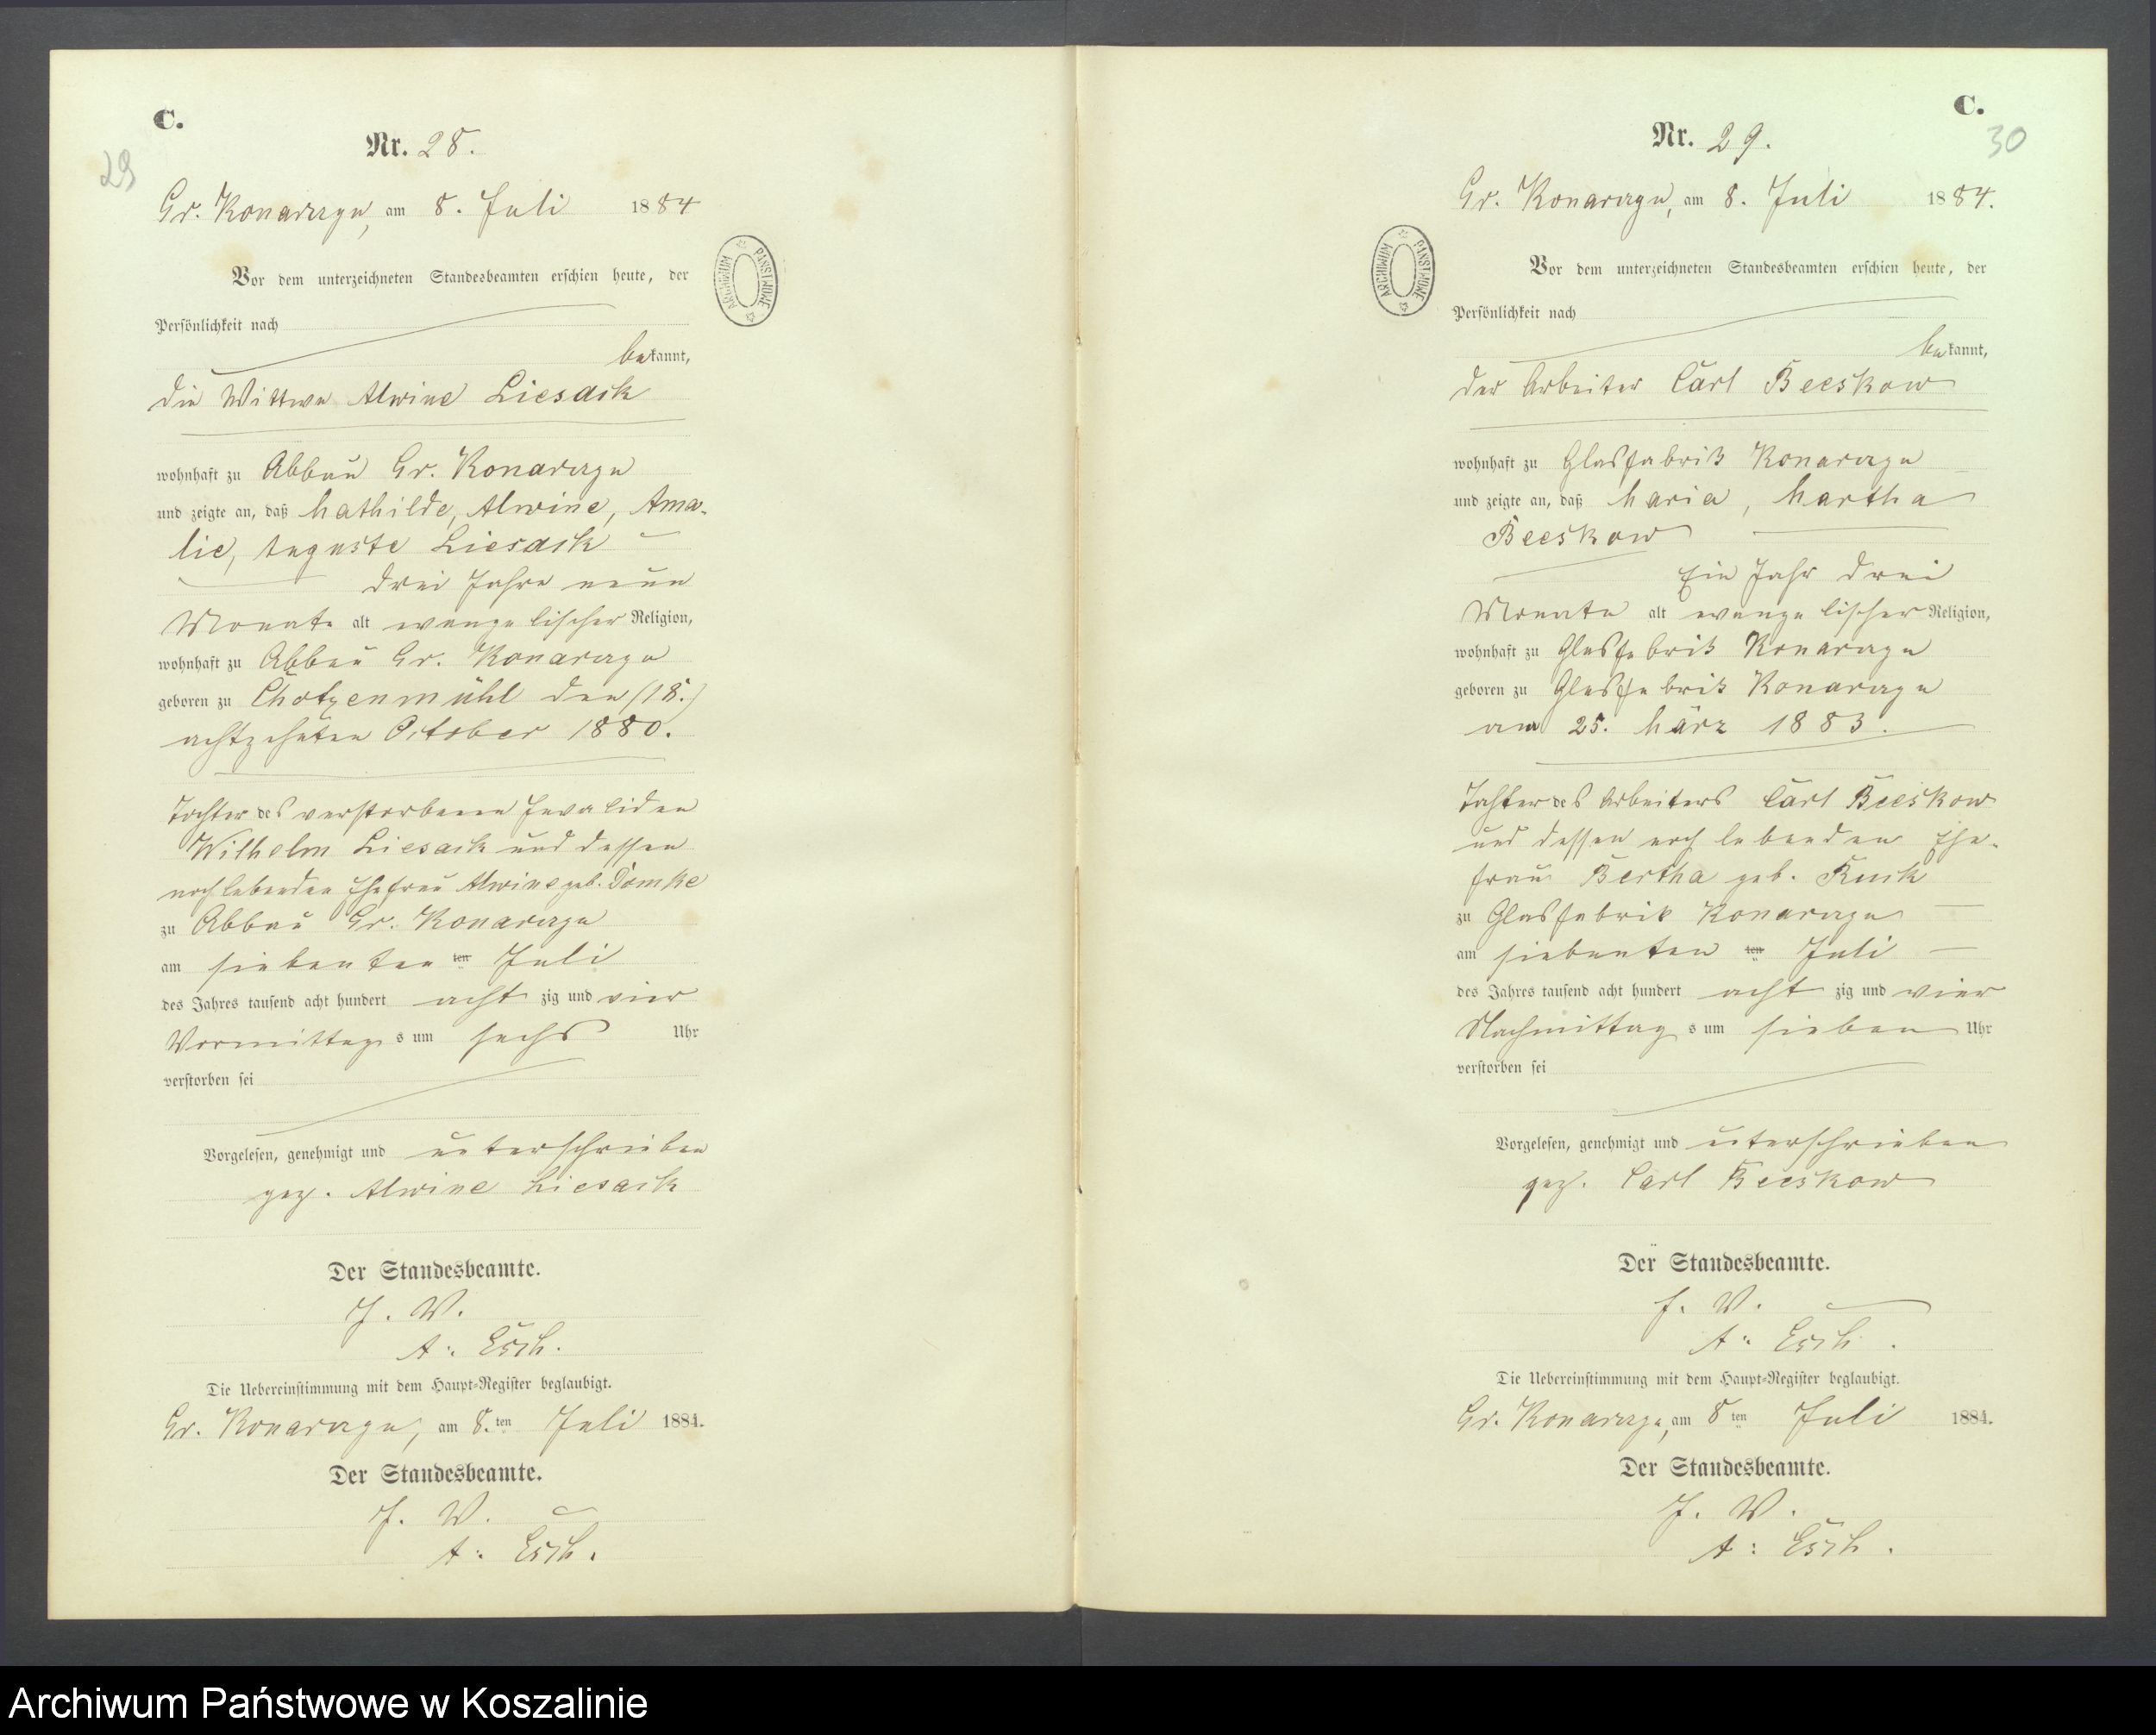 C.
29
Nr. 28.
Gr. Konarczyn, am 8. Juli 1884
Vor dem unterzeichneten Standesbeamten erschien heute, der
Persönlichkeit nach
bekannt,
die Wittwe Alwine Liesack
wohnhaft zu Abbau Gr. Konarczyn
und zeigte an, daß Mathilde, Alwine, Ama-
lie, Auguste Liesack
drei Jahre neun
Monate alt evangelischer Religion,
wohnhaft zu Abbau Gr. Konarczyn
geboren zu Chotzenmühl den (18.)
achtzehnten October 1880.
Tochter des verstorbenen Invaliden
Wilhelm Liesack und dessen
noch lebenden Ehefrau Alwine geb. Domke
zu Abbau Gr. Konarczyn
am siebenten ten Juli
des Jahres tausend acht hundert acht zig und vier
Vormittags um sechs Uhr
verstorben sei
Vorgelesen, genehmigt und unterschrieben
gez. Alwine Liesack
Der Standesbeamte.
J. V.
A: Esch.
Die Uebereinstimmung mit dem Haupt-Register beglaubigt.
Gr. Konarczyn, am 8.ten Juli 1884.
Der Standesbeamte.
J. V.
A: Esch.
ARCHIWUM PAŃSTWOWE
C.
30
Nr. 29.
Gr. Konarczyn, am 8. Juli 1884.
Vor dem unterzeichneten Standesbeamten erschien heute, der
Persönlichkeit nach
bekannt,
der Arbeiter Carl Beeskow
wohnhaft zu Glasfabrik Konarczyn
und zeigte an, daß Maria, Martha
Beeskow
Ein Jahr drei
Monate alt evangelischer Religion,
wohnhaft zu Glasfabrik Konarczyn
geboren zu Glasfabrik Konarczyn
am 25. März 1883.
Tochter des Arbeiters Carl Beeskow
und dessen noch lebenden Ehe-
frau Bertha geb.
zu Glasfabrik Konarczyn
am siebenten ten Juli
des Jahres tausend acht hundert acht zig und vier
Nachmittags um sieben Uhr
verstorben sei
Vorgelesen, genehmigt und unterschrieben
gez. Carl Beeskow
Der Standesbeamte.
J. V.
A: Esch.
Die Uebereinstimmung mit dem Haupt-Register beglaubigt.
Gr. Konarczyn, am 8ten Juli 1884.
Der Standesbeamte.
J. V.
A: Esch.
ARCHIWUM PAŃSTWOWE
Archiwum Państwowe w Koszalinie